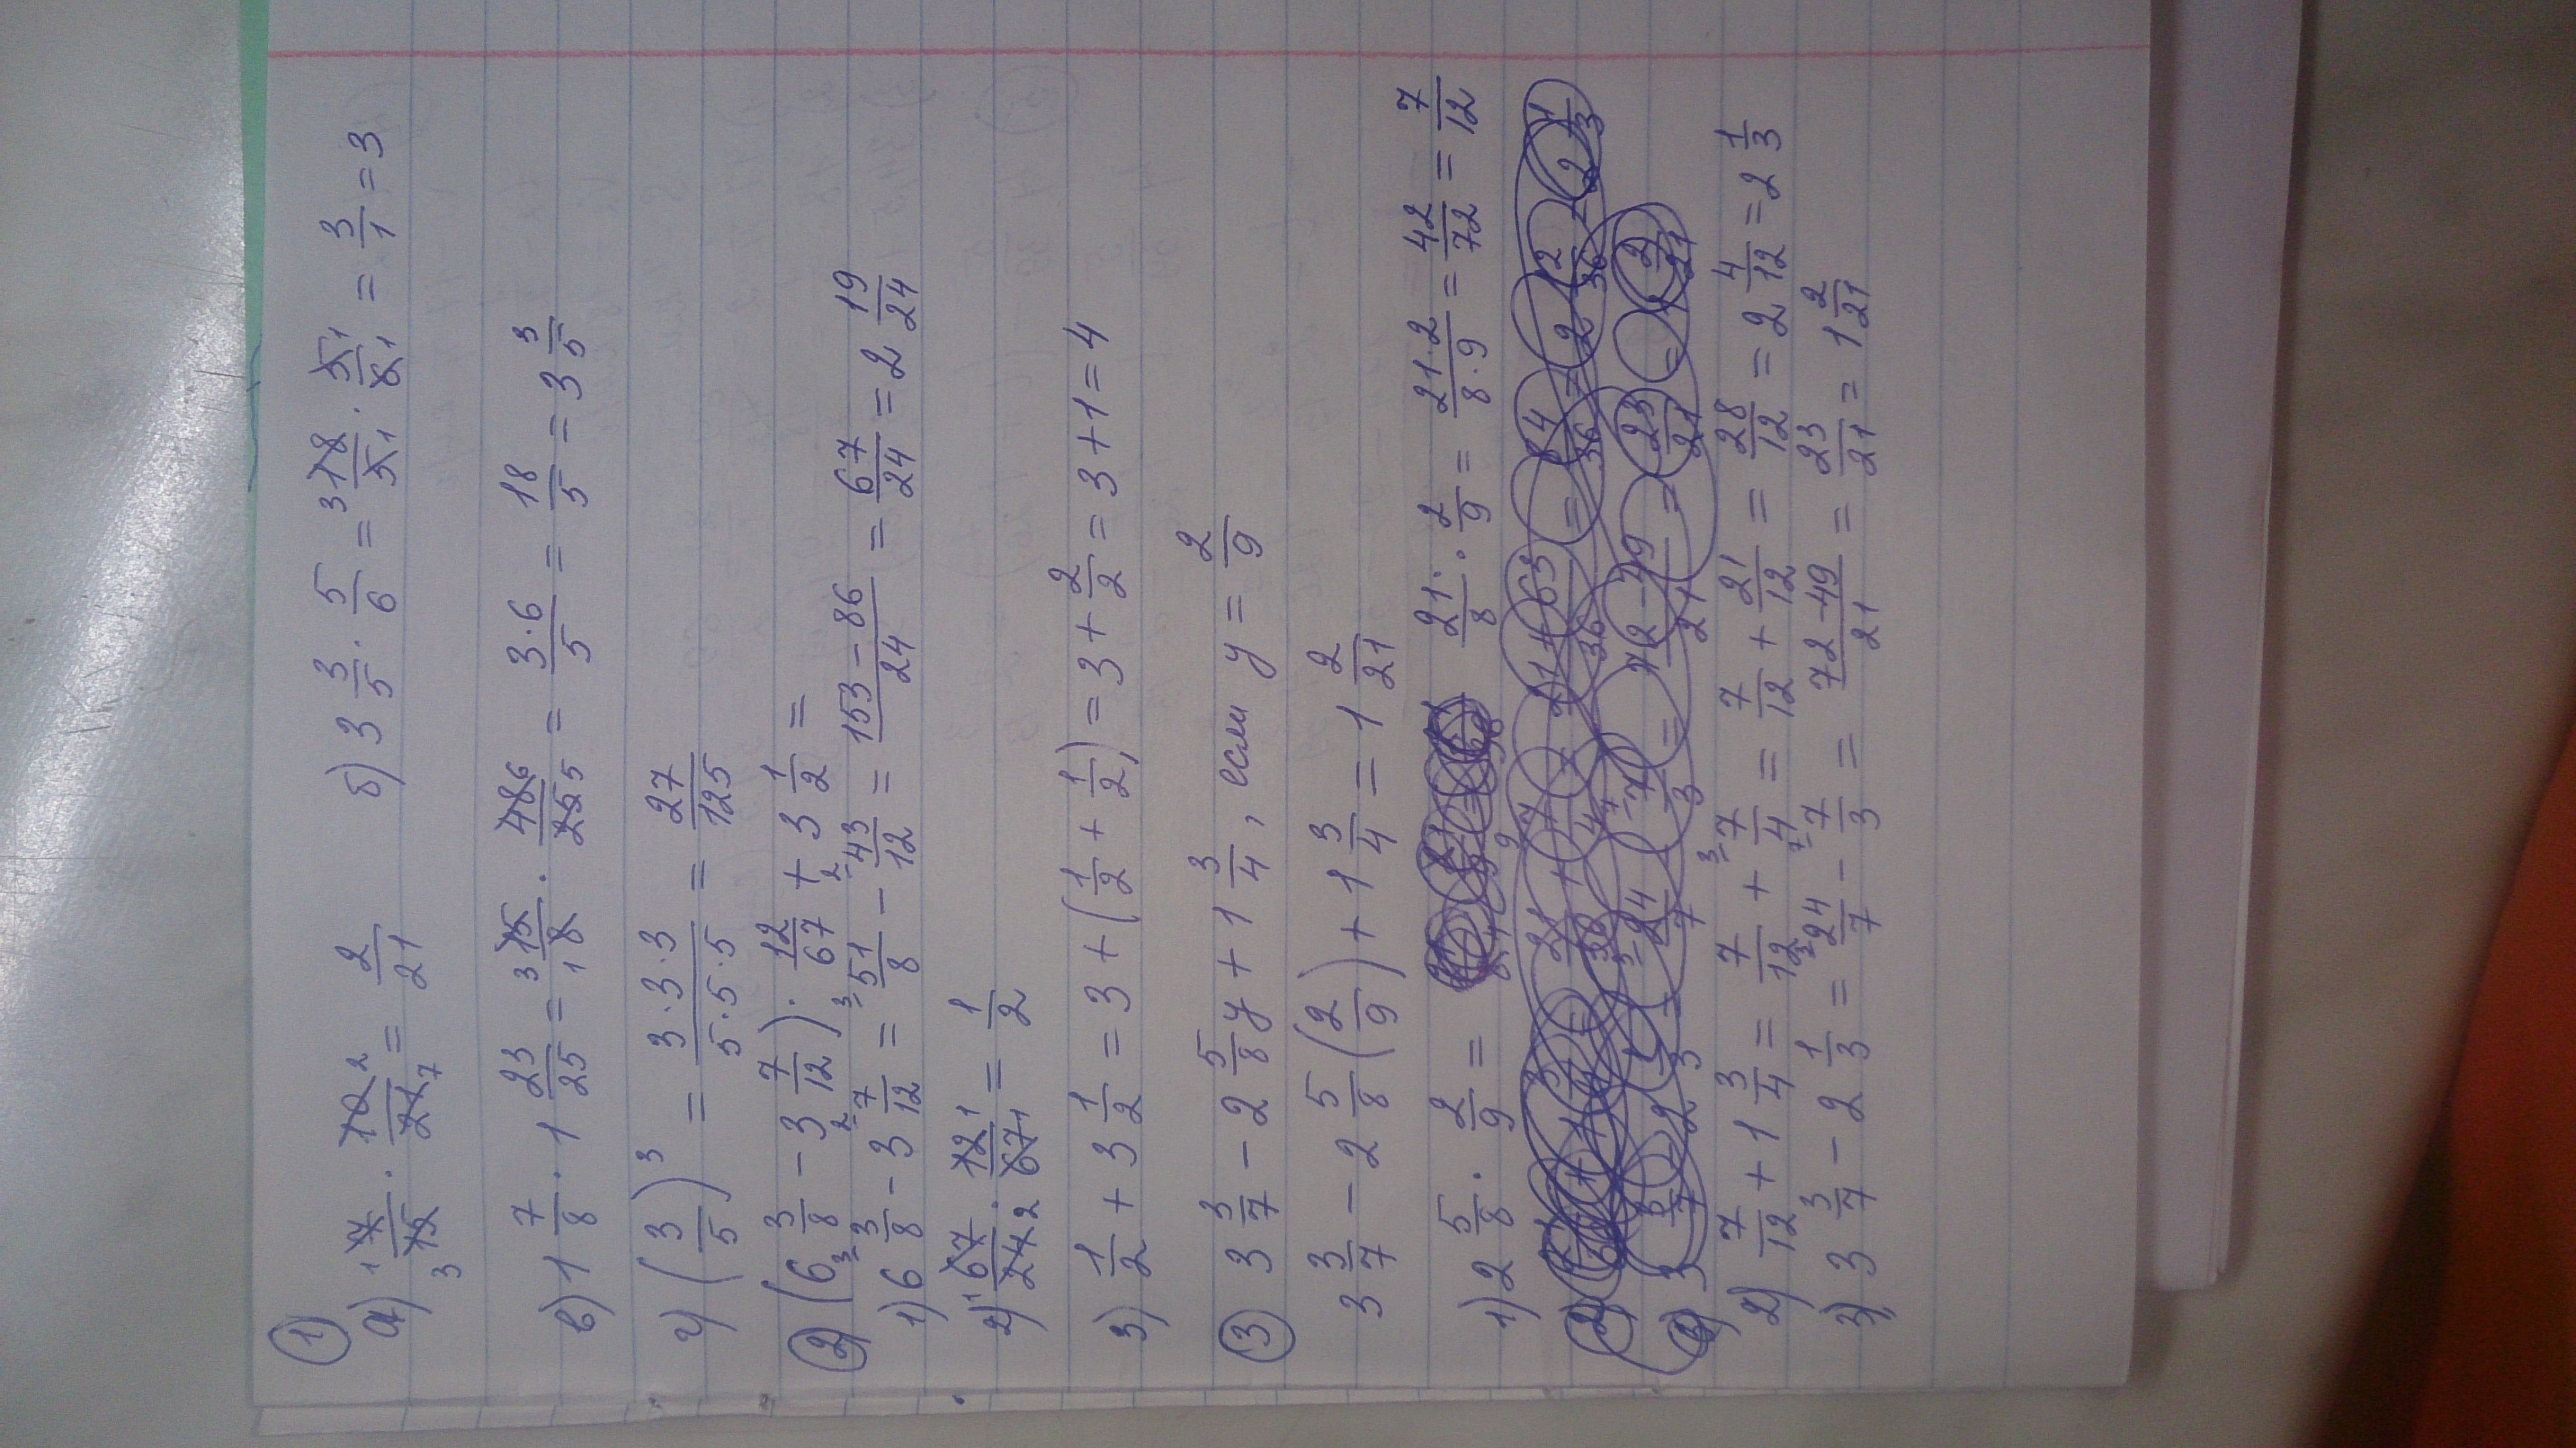 ①
а) 7/15 · 10/21 = 2/21   б) 3 3/5 · 5/6 = 18/5 · 5/6 = 3/1 = 3
в) 1 7/8 · 1 23/25 = 15/8 · 48/25 = 3·6/5 = 18/5 = 3 3/5
г) (3/5)³ = 3·3·3/5·5·5 = 27/125
② (6 3/8 - 3 7/12) · 12/67 + 3 1/2 =
1) 6 3/8 - 3 7/12 = 51/8 - 43/12 = 153-86/24 = 67/24 = 2 19/24
2) 67/24 · 12/67 = 1/2
3) 1/2 + 3 1/2 = 3 + (1/2 + 1/2) = 3 + 2/2 = 3+1=4
③ 3 3/7 - 2 5/8 y + 1 3/4, если y = 2/9
3 3/7 - 2 5/8 (2/9) + 1 3/4 = 1 2/21
1) 2 5/8 · 2/9 = 21/8 · 2/9 = 21·2/8·9 = 42/72 = 7/12
2) 7/12 + 1 3/4 = 7/12 + 7/4 = 7/12 + 21/12 = 28/12 = 2 4/12 = 2 1/3
3) 3 3/7 - 2 1/3 = 24/7 - 7/3 = 72-49/21 = 23/21 = 1 2/21